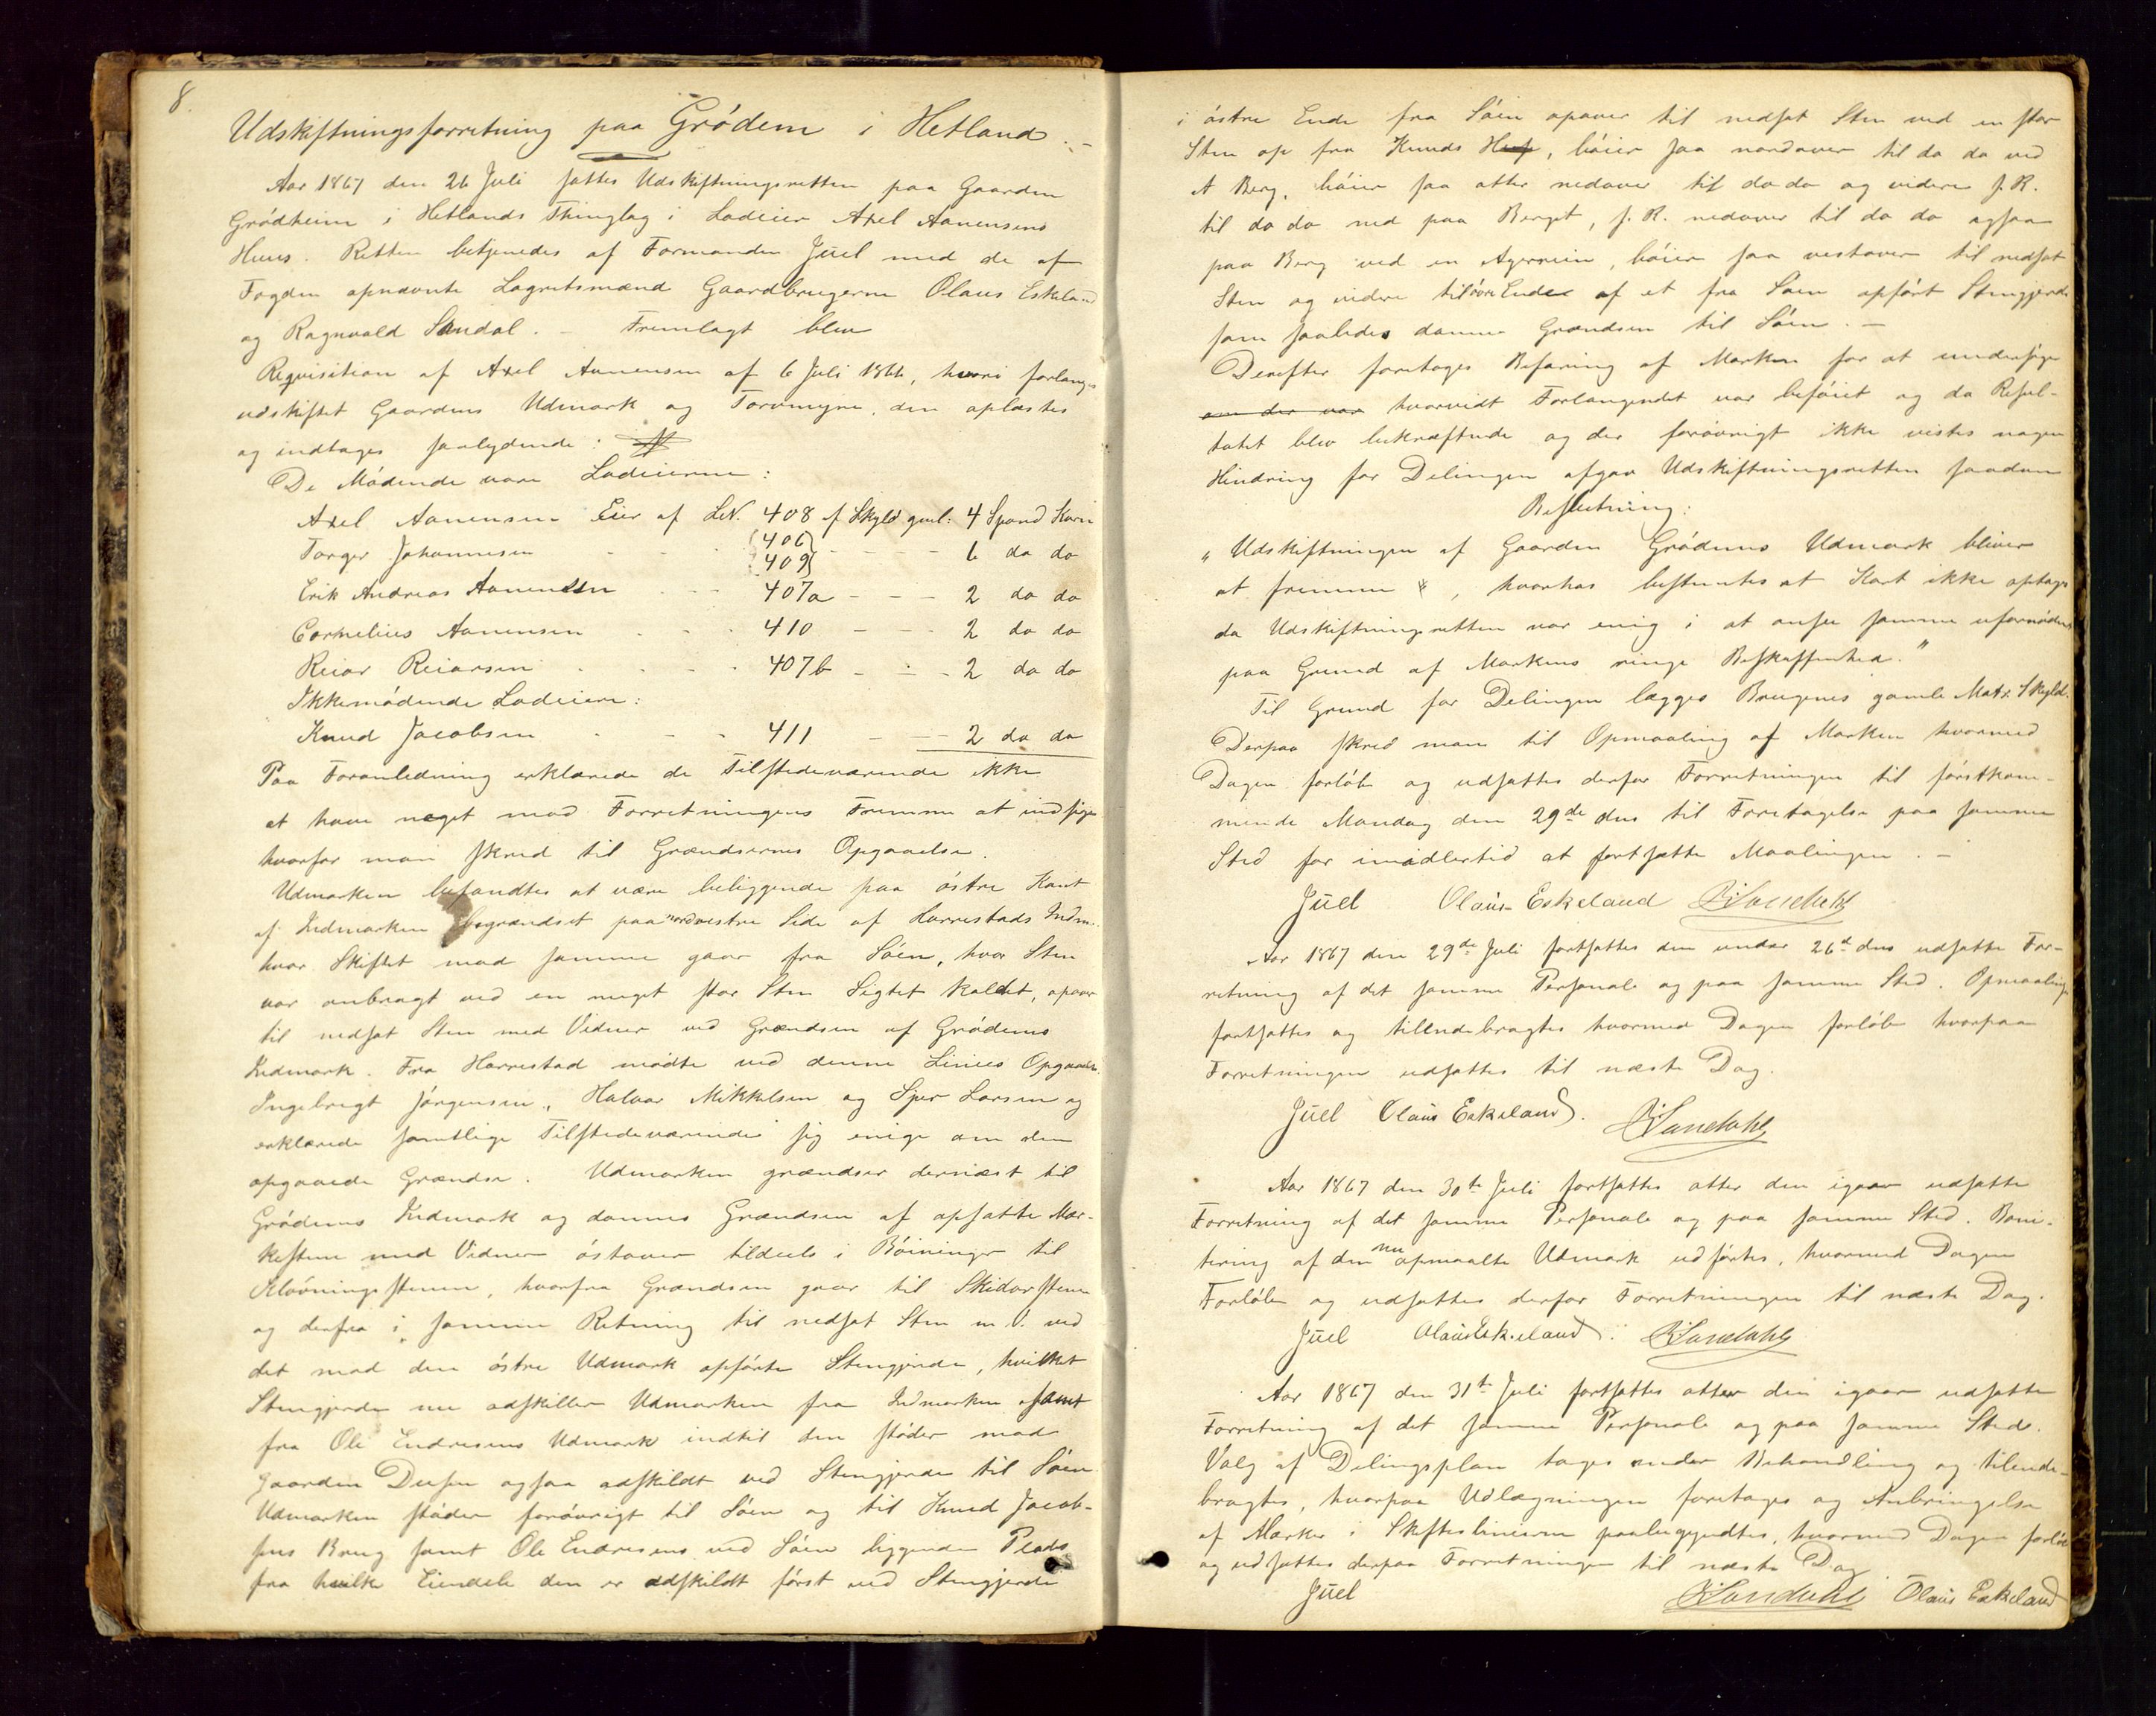 8.
Udskiftningsforretning paa Grödem i Hetland.-
Aar 1867 den 26 Juli sattes Udskiftningsretten paa Gaarden
Grödheim i Hetlands Thinglag i Lodeier Axel Aanensens
Huus. Retten betjenedes af Formanden Juel med de af
Fogden opnævnte Lagretsmænd Gaardbrugerne Olaus Eskeland
og Ragnvald Sandal. - Fremlagt blev
Reqvisition af Axel Aanensen af 6 Juli 1866, hvori forlanges
udskiftet Gaardens Udmark og Torvmyre, den oplæstes
og indtages saalydende:
De Mödende vare Lodeierne:
Axel Aanensen Eier af LN. 408 af Skyld gml: 4 Spand Korn
Torger Johannesen - - - (406) (409) - - - 6 do do
Erik Andreas Aanensen - - 407a - - - 2 do do
Cornelius Aanensen - - - 410 - - - 2 do do
Reiar Reiarsen - - - 407b - - - 2 do do
Ikkemödende Lodeiere:
Knud Jacobsen - - - 411 - - 2 do do
Paa Foranledning erklærede de Tilstedeværende ikke
at have noget mod Forretningens Fremme at indsige
hvorfor man skred til Grændsernes Opgaaelse.
Udmarken befandtes at være beliggende paa östre Kant
af Indmarken begrændset paa nordvestre Side af Harrestads Indm.
hvor Skiftet mod samme gaar fra Söen, hvor Sten
var anbragt ved en meget stor Sten Sigtet kaldet, opover
til nedsat Sten med Vidner ved Grændsen af Grödems
Indmark. Fra Harrestad mödte ved denne Linies Opgaaelse
Ingebregt Jörgensen, Halvor Mikkelsen og Sjur Larsen og
erklærede samtlige Tilstedeværende sig enige om den
opgaaede Grændse. Udmarken grændser dernæst til
Grödems Indmark og dannes Grændsen af opsatte Mær-
kestene med Vidner östover tildeels i Böininger til
Klövningsstenen, hvorfra Grændsen gaar til Skidarstenen
og derfra i samme Retning til nedsat Sten m. V. ved
det mod den östre Udmark opförte Stengjerde, hvilket
Stengjerde nu adskiller Udmarken fra Indmarken samt
fra Ole Endresens Udmark indtil den stöder mod
Gaarden Dusen ogsaa adskildt ved Stengjerde til Söen
Udmarken stöder forövrigt til Söen og til Knud Jacob-
sens Brug samt Ole Endresens ved Söen liggende Plads
fra hvilke Eiendele den er adskildt först ved Stengjerde
i östre Ende fra Söen opover til nedsat Sten ved en stor
Sten op fra Knuds Huus, böier saa nordover til do do ved
et Berg, böier saa atter nedover til do do og videre s. R.
til do do ned paa Berget, s. R. nedover til do do ogsaa
paa Berg ved en Agerrein, böier saa vestover til nedsat
Sten og videre til övre Ende af et fra Söen opfört Stengjerde
som saaledes danner Grændsen til Söen. -
Derefter foretoges Befaring af Marken for at undersöge
om der var hvorvidt Forlangendet var beföiet og da Resul-
tatet blev bekræftende og der forövrigt ikke vistes nogen
Hindring for Delingen afgav Udskiftningsretten saadan
Beslutning:
"Udskiftningen af Gaarden Grödems Udmark bliver
at fremme, hvorhos bestemtes at Kart ikke optages
da Udskiftningsretten var enig i at ansee samme ufornödent
paa Grund af Markens ringe Beskaffenhed."
Til Grund for Delingen lægges Brugenes gamle Matr. Skyld.
Derpaa skred man til Opmaaling af Marken hvormed
Dagen forlöb og udsattes derfor Forretningen til förstkom-
mende Mandag den 29de dns til Foretagelse paa samme
Sted for imidlertid at fortsætte Maalingen. -
Juel Olaus Eskeland RSandahl
Aar 1867 den 29de Juli fortsattes den under 26de dns udsatte For-
retning af det samme Personale og paa samme Sted. Opmaalingen
fortsattes og tilendebragtes hvormed Dagen forlöb hvorpaa
Forretningen udsattes til næste Dag.
Juel Olaus Eskeland. RSandahl
Aar 1867 den 30te Juli fortsattes atter den igaar udsatte
Forretning af det samme Personale og paa samme Sted. Boni-
tering af den nu opmaalte Udmark udförtes, hvormed Dagen
Forlöb og udsattes derfor Forretningen til næste Dag.
Juel Olaus Eskeland. RSandahl
Aar 1867 den 31te Juli fortsattes atter den igaar udsatte
Forretning af det samme Personale og paa samme Sted.
Valg af Delingsplan toges under Behandling og tilende-
bragtes, hvorpaa Udlægningen foretoges og Anbringelse
af Mærker i Skifteslinierne paabegyndtes, hvormed Dagen forlöb
og udsattes derpaa Forretningen til næste Dag
Juel RSandahl Olaus Eskeland